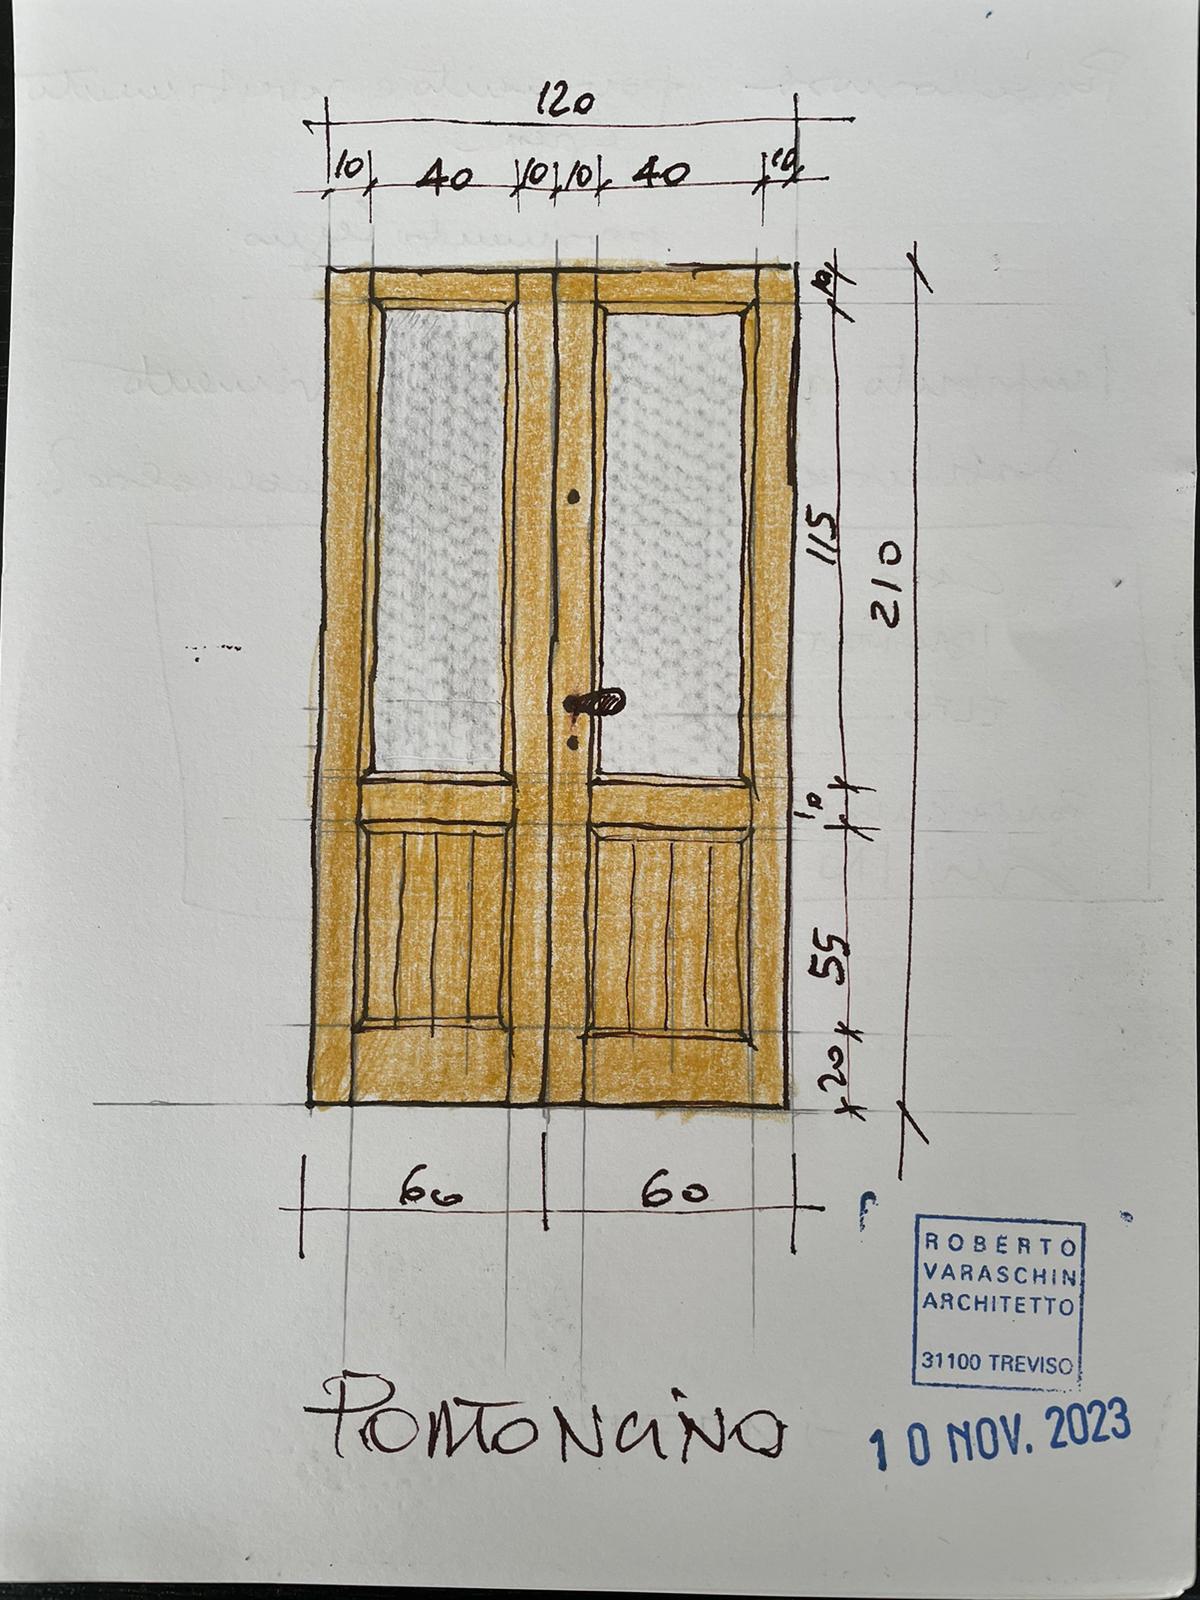 120
10 40 10 10 40 10
10
115
210
10
55
20
60 60
ROBERTO
VARASCHIN
ARCHITETTO
31100 TREVISO
PORTONCINO
10 NOV. 2023